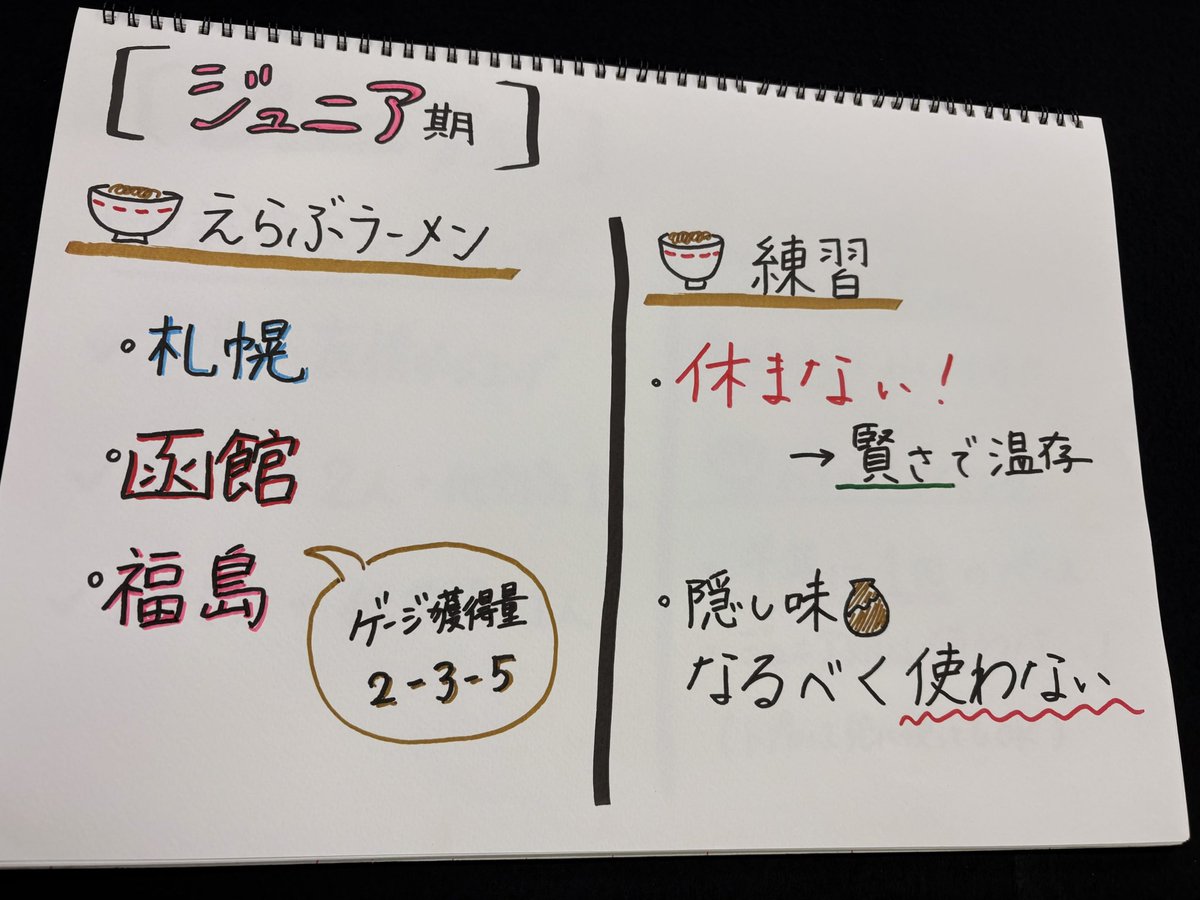 [ジュニア期]
えらぶラーメン
・札幌
・函館
・福島
ゲージ獲得量
2-3-5
練習
・休まない!
→賢さで温存
・隠し味
なるべく使わない